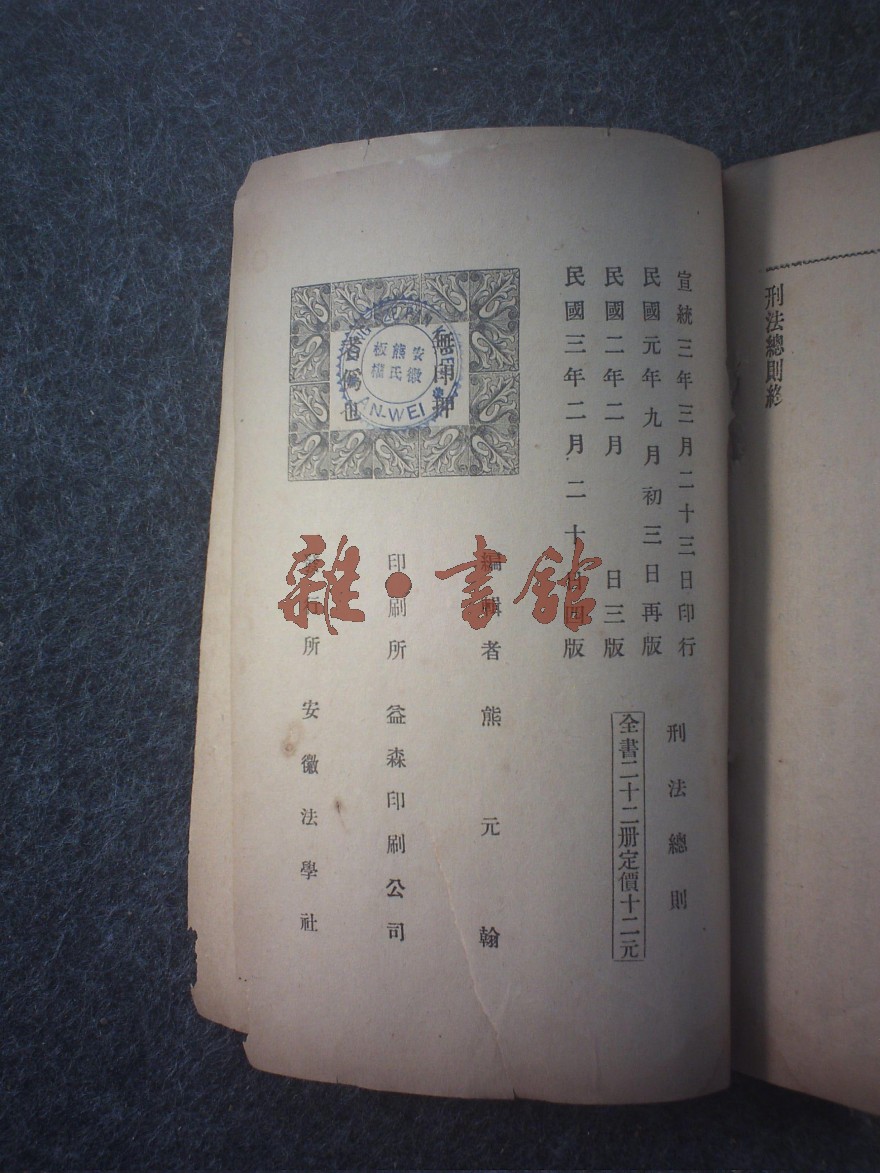 刑法總則終
宣統三年三月二十三日印行
民國元年九月初三日再版
民國二年二月　日三版
民國三年二月二十日四版
刑法總則
全書二十二册定價十二元
編輯者熊元翰
印刷所益森印刷公司
所安徽法學社
無印卽
者僞也
安徽
熊氏
板權
AN-WEI
雜·書館